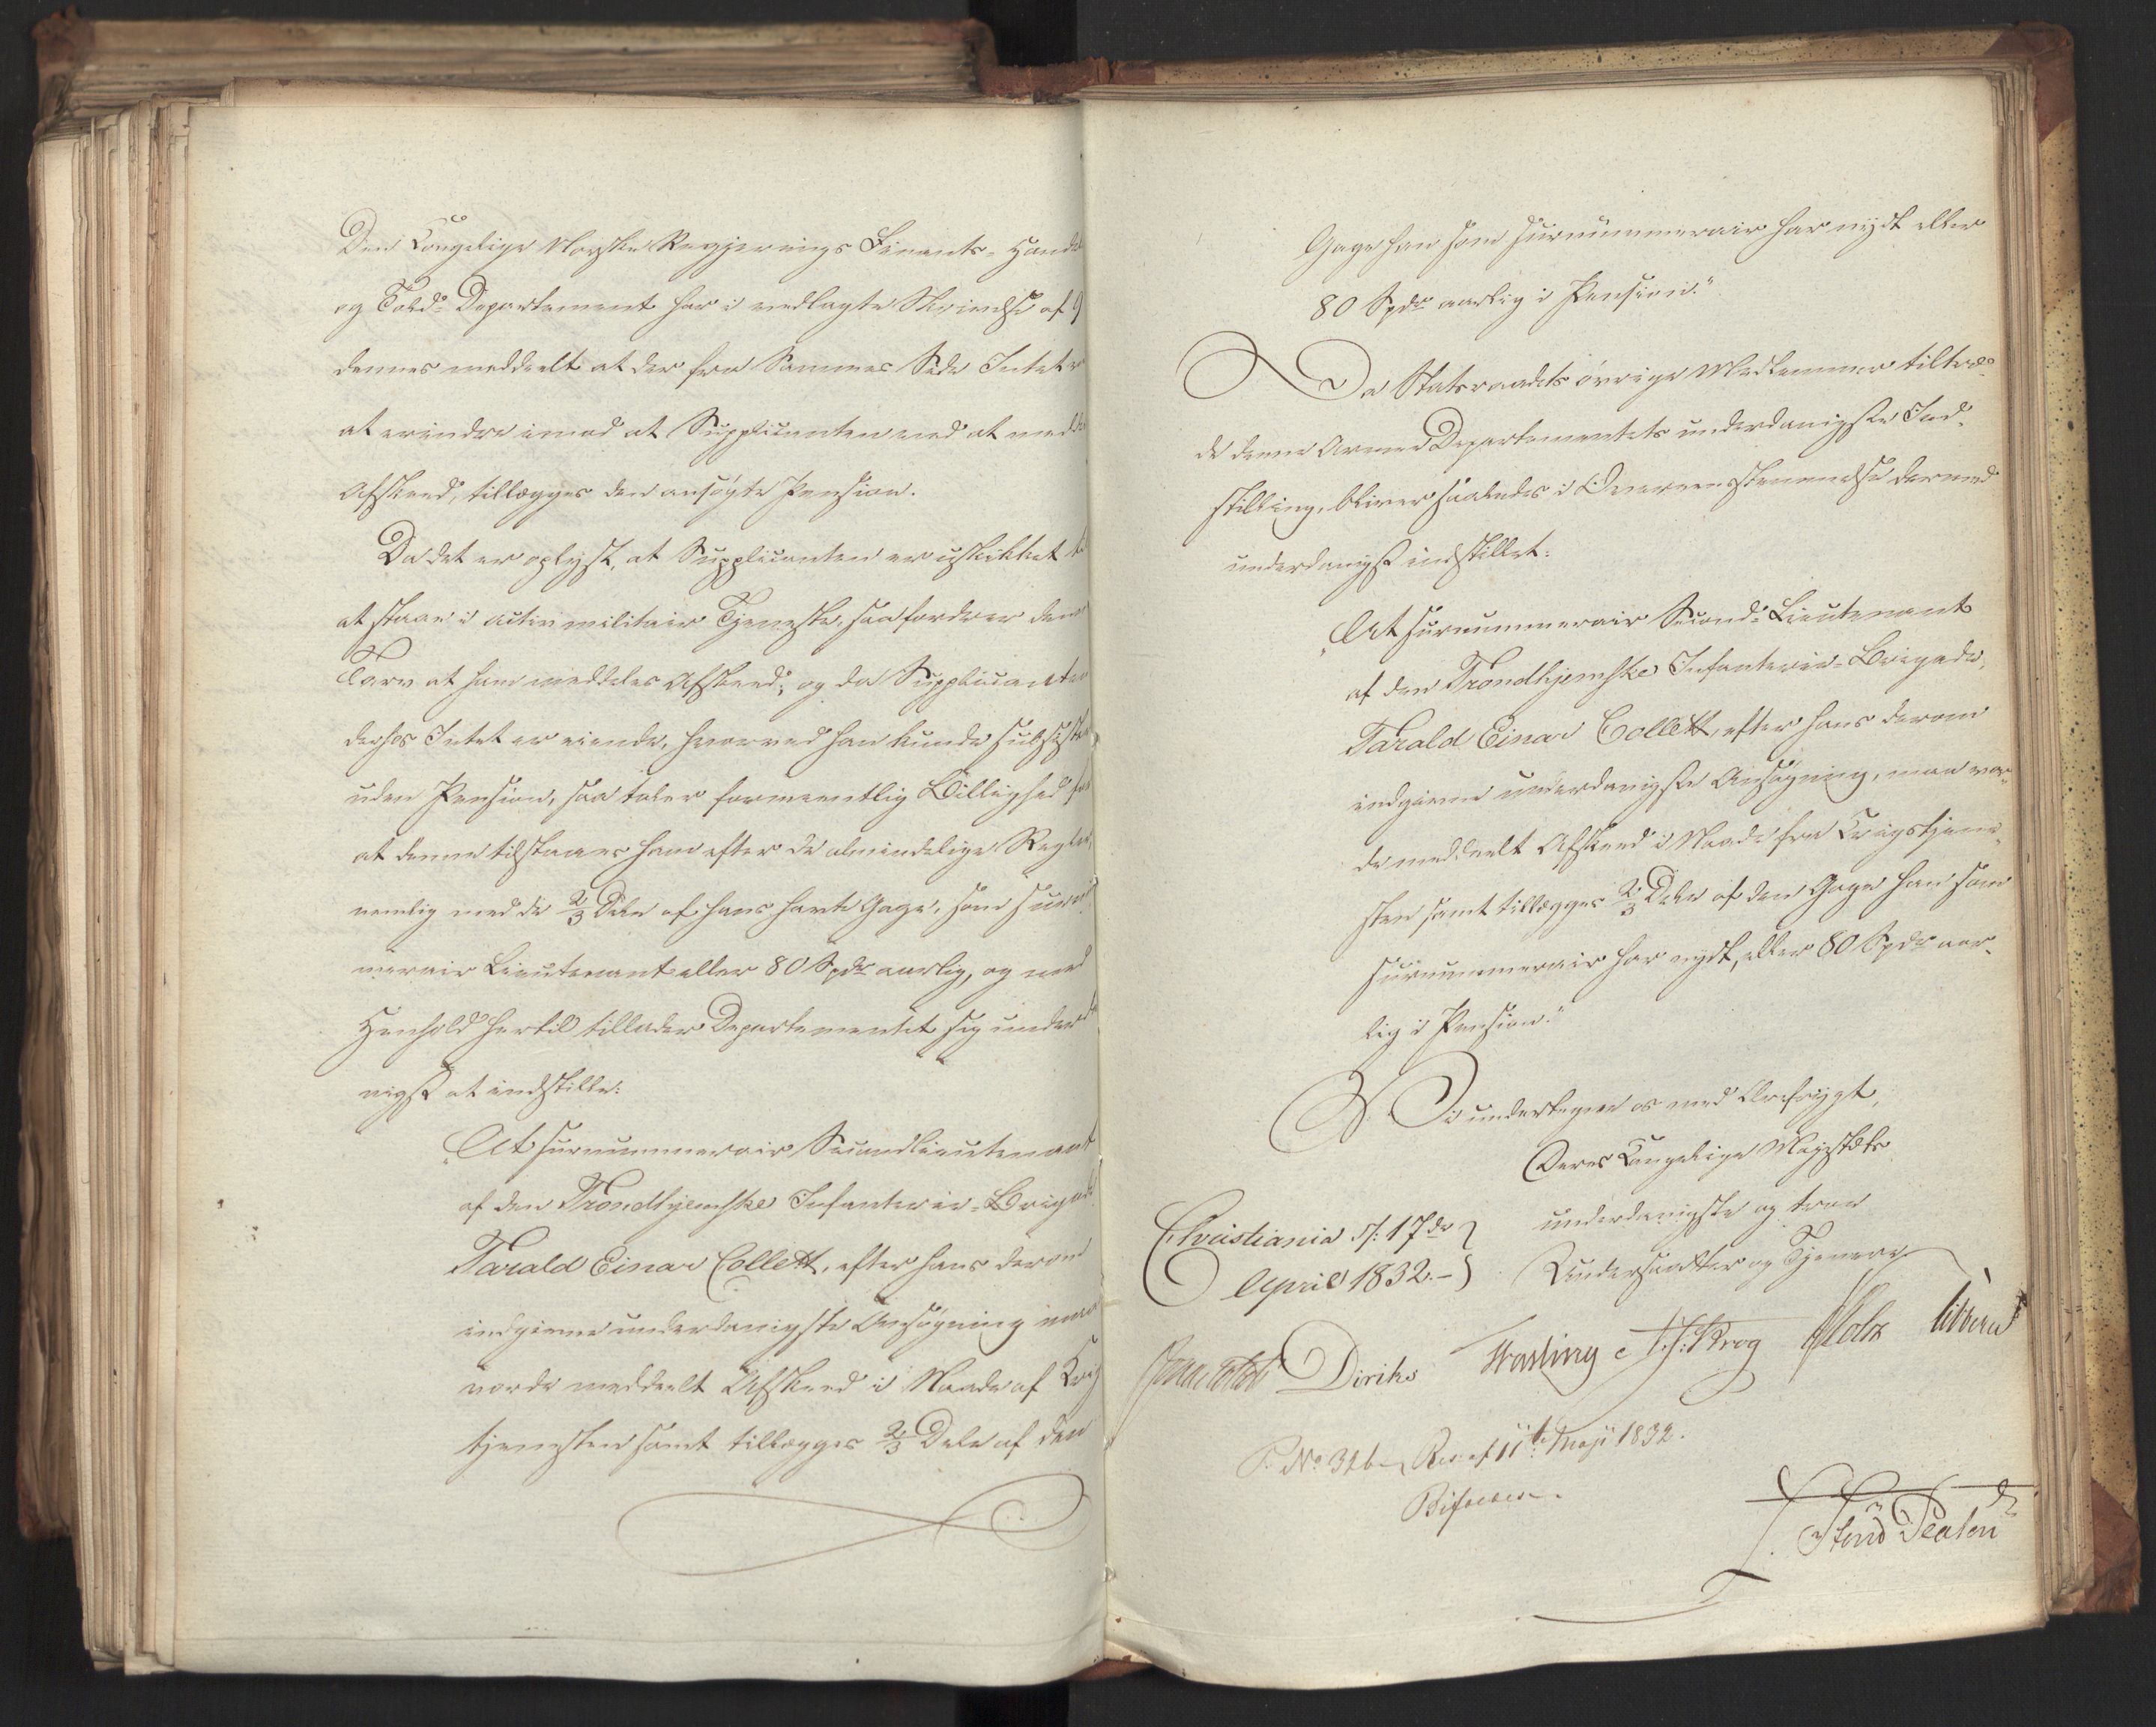 Den Kongelige Norske Regjerings Finants- Handels
og Told-Departement har i vedlagte Skrivelse af 9
dennes meddeelt at der fra Sammes Side Intet er
at erindre imod at Supplicanten ved at meddeles
Afskeed, tillægges den ansøgte Pension.
Da det er oplyst, at Supplicanten er uskikket til
at staae i activ militair Tjeneste, saa fordrer dens
Tarv at ham meddeles Afskeed; og da Supplicanten
derhos Intet er eiende, hvorved han kunde subsistere
uden Pension, saa taler formeentlig Billighed for
at denne tilstaaes ham efter de almindelige Regler,
nemlig med de 2/3 Dele af hans havte Gage, som surnum-
merair Lieutenant eller 80 Spdr aarlig, og med
Henhold hertil tillader Departementet sig underda-
nigst at indstille:
"At surnummerair Secondlieutenant
af den Trondhjemske Infanterie-Brigade
Tarald Einar Collett, efter hans derom
indgivne underdanigste Ansøgning maa
vorde meddeelt Afskeed i Naade af Krigs
tjenesten samt tillægges 2/3 Dele af den
Gage han som surnummerair har nydt eller
80 Spdr aarlig i Pension."
Da Statsraadets øvrige Medlemmer tiltræ-
de denne Armee Departementets underdanigste Ind-
stilling, bliver saaledes i Overeensstemmelse dermed
underdanigst indstillet:
"At surnummerair Second-Lieutenant
af den Trondhjemske Infanterie-Brigade,
Tarald Einar Collett, efter hans derom
indgivne underdanigste Ansøgning, maa vor-
de meddeelt Afskeed i Naade fra Krigstjene-
sten samt tillægges 2/3 Dele af den Gage han som
surnummerair har nydt, eller 80 Spdr aar-
lig i Pension."
Vi undertegne os med Ærefrygt,
Deres Kongelige Majestæts
underdanigste og troe
Undersaatter og Tjenere
Christiania d: 17de
April 1832.-
Jonas Collett Diriks Vosling Krog Holst
P. No 326 Res. af 11te Maji 1832.
Bifaldes.